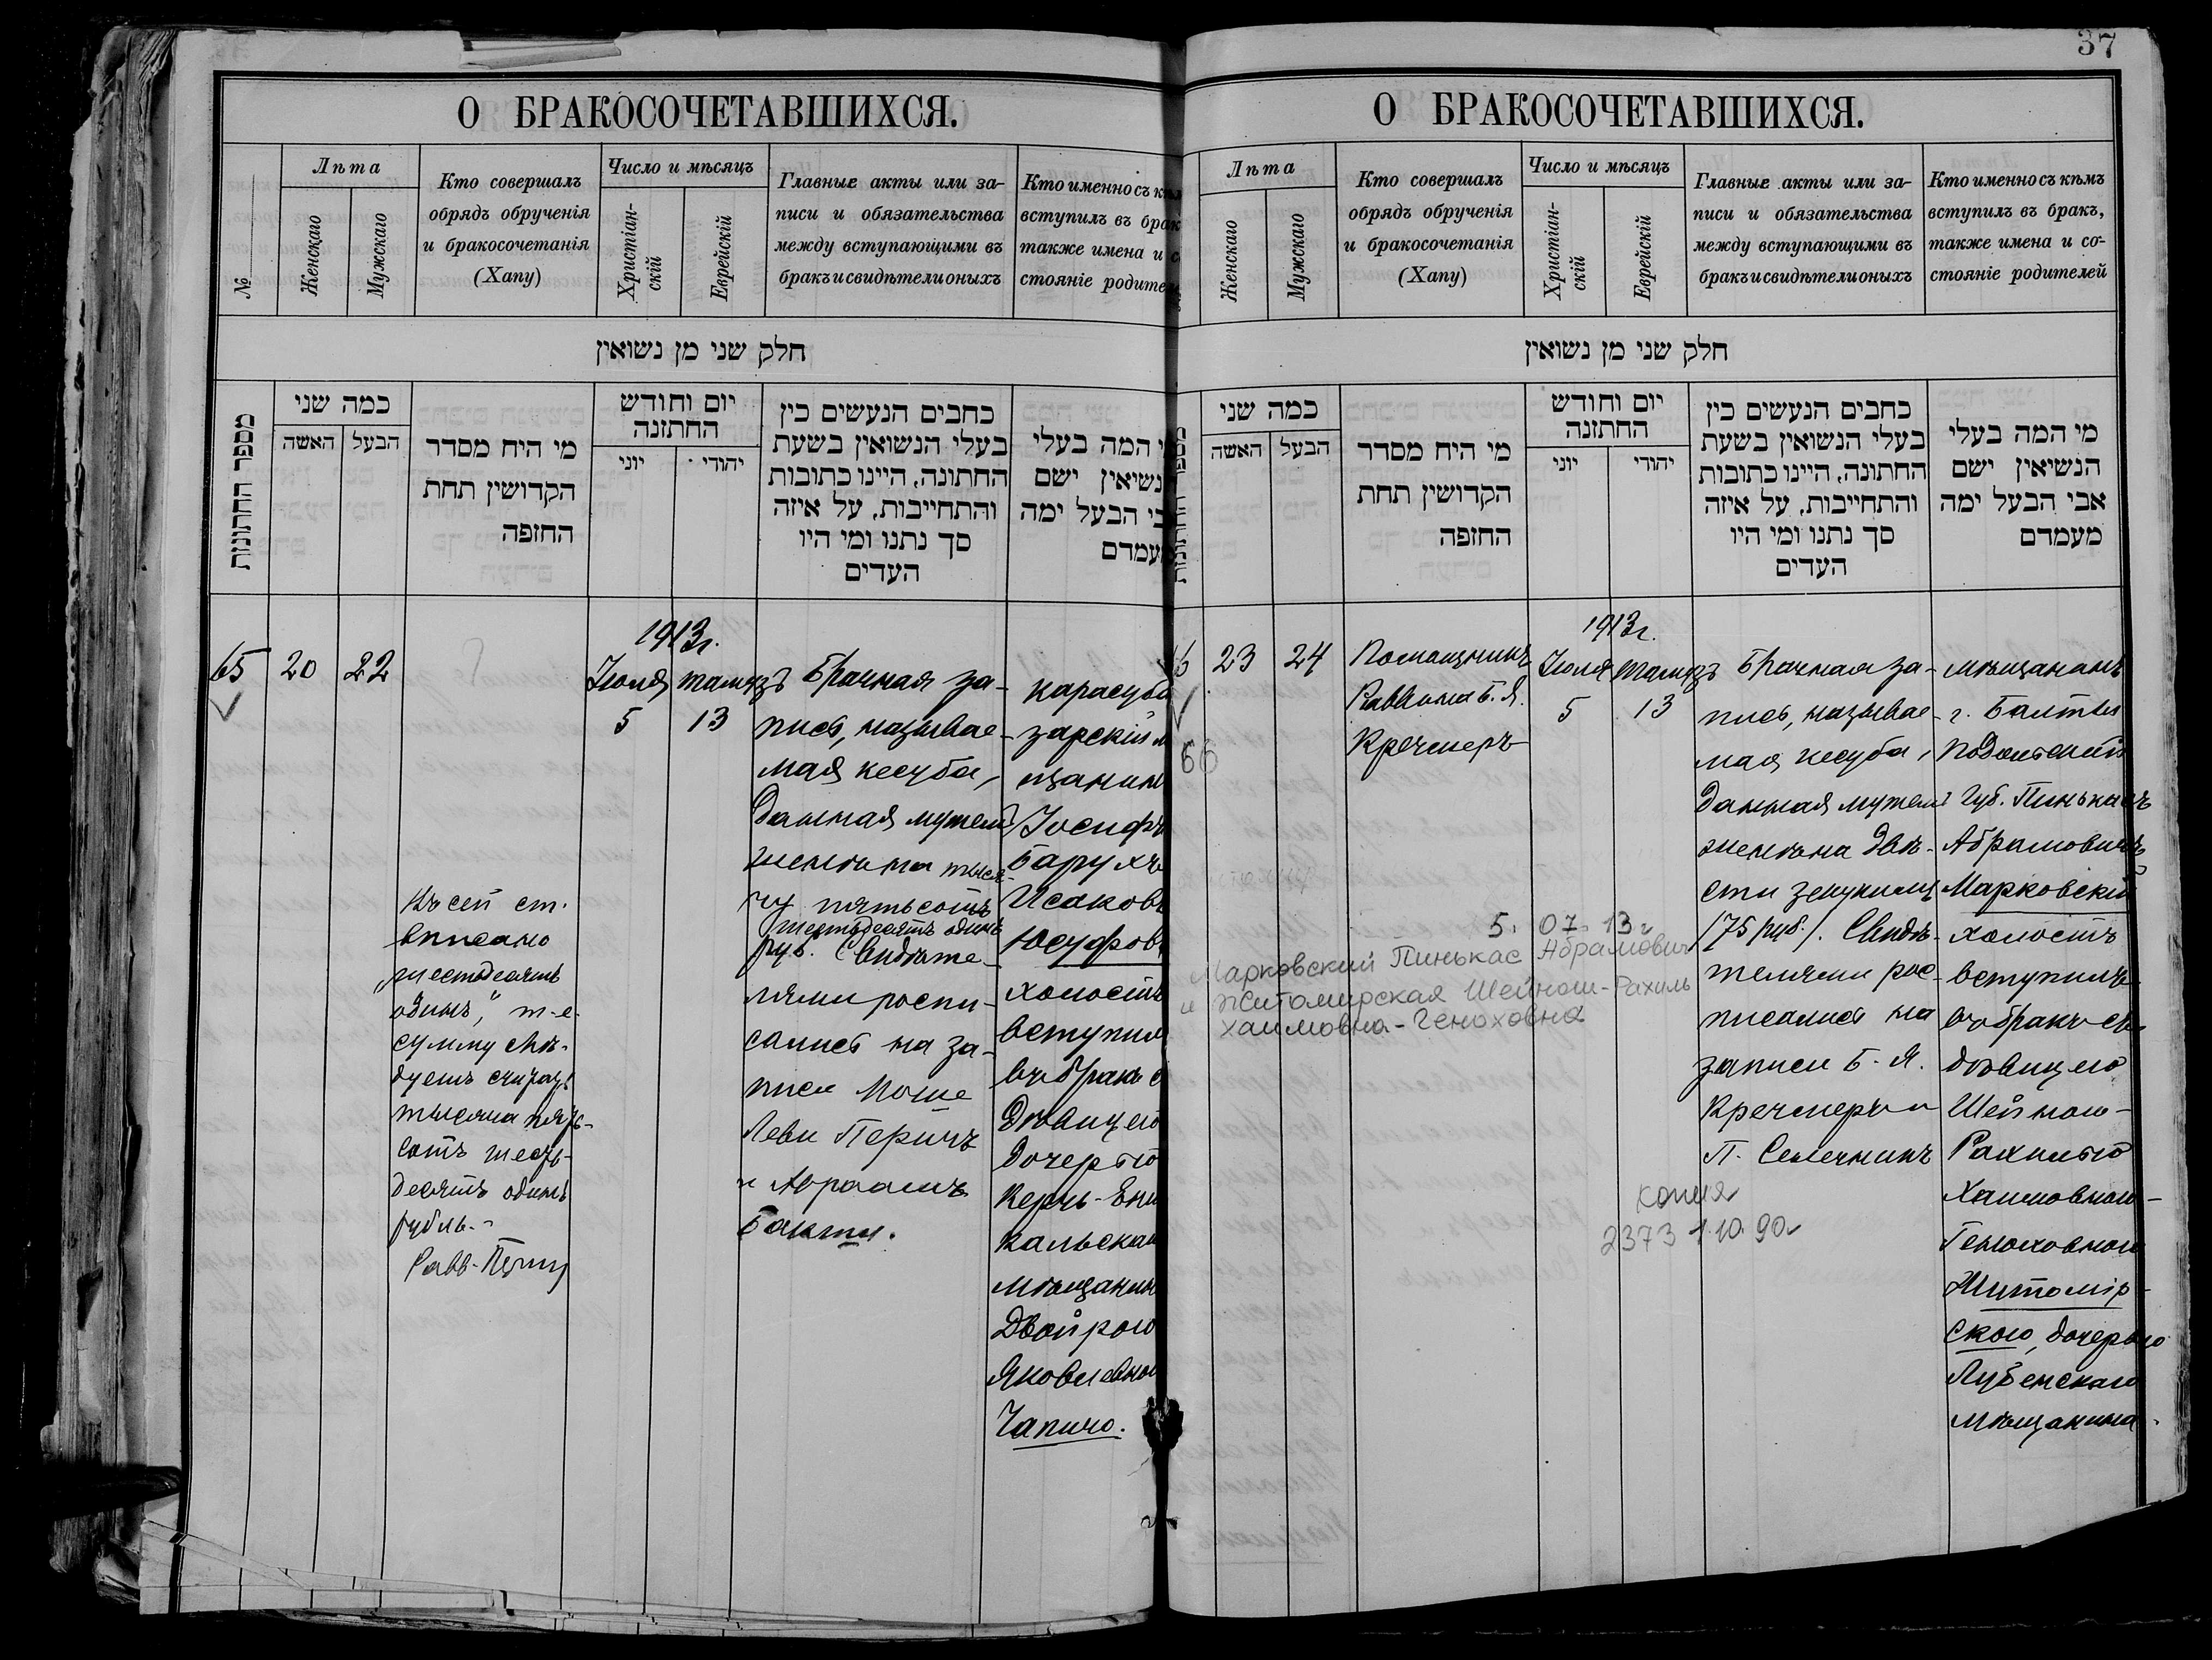 О БРАКОСОЧЕТАВШИХСЯ.
№
Лѣта
Женскаго
Мужскаго
Кто совершалъ
обрядъ обрученія
и бракосочетанія
(Хапу)
Число и мѣсяцъ
Христіан-
скій
Еврейскій
Главные акты или за-
писи и обязательства
между вступающими въ
бракъ и свидѣтели оныхъ
Кто именно съ кѣм
вступилъ въ брак
также имена и с
стояніе родите
חלק שני מן נשואין
מספר החתונות
כמה שני
האשה
הבעל
מי היח מסדר
הקדושין תחת
החופה
יום וחודש
החתונה
יוני
יהודי
כחבים הנעשים כין
בעלי הנשואין בשעת
החתונה, היינו כתובות
והתחייבות, על איזה
סך נתנו ומי היו
העדים
י המה בעלי
נשיאין ישם
בי הבעל ימה
עמדם
65
20
22
1913г.
Іюля
5
тамузъ
13
Къ сей ст.
вписано
„шестьдесятъ
одинъ," т-е.
сумму слѣ-
дуетъ считать
тысяча пять-
сотъ шесть-
десятъ одинъ
рубль.-
Равв.
Брачная за-
пись, называе-
мая кесуба,
данная мужемъ
женѣ на тыся-
чу пятьсотъ
шестьдесятъ одинъ
руб. Свидѣте-
лями роспи-
сались на за-
писи Моше
Леви Перичъ
и Авраамъ
Бакши.
карасуба
зарскій м
щанин
Іосифъ
Барухъ
Исаков
Юсуфов
холостъ
вступил
въ бракъ с
дѣвицею
дочерью
Керчь-Ени
кальскаг
мѣщанин
Двойрою
Яковлевно
Чапичо.
37
О БРАКОСОЧЕТАВШИХСЯ.
Лѣта
Женскаго
Мужскаго
Кто совершалъ
обрядъ обрученія
и бракосочетанія
(Хапу)
Число и мѣсяцъ
Христіан-
скій
Еврейскій
Главные акты или за-
писи и обязательства
между вступающими въ
бракъ и свидѣтели оныхъ
Кто именно съ кѣмъ
вступилъ въ бракъ,
также имена и со-
стояніе родителей
חלק שני מן נשואין
כמה שני
האשה
הבעל
מי היח מסדר
הקדושין תחת
החופה
יום וחודש
החתונה
יוני
יהודי
כחבים הנעשים כין
בעלי הנשואין בשעת
החתונה, היינו כתובות
והתחייבות, על איזה
סך נתנו ומי היו
העדים
מי המה בעלי
הנשיאין ישם
אבי הבעל ימה
מעמדם
6
66
23
24
Помощникъ
Раввина Б. Я.
Кречмеръ
1913г.
Іюля
5
тамузъ
13
Брачная за-
пись, называе-
мая кесуба,
данная мужемъ
женѣ на двѣ-
сти зекукимъ
/75 руб./. Свидѣ-
телями рос-
писались на
записи Б. Я.
Кречмеръ и
П. Семечникъ
мѣщанинъ
г. Балты
Подольской
Губ. Пинькасъ
Абрамовичъ
Марковскій
холостъ
вступилъ
въ бракъ съ
дѣвицею
Шейною-
Рахилью
Хаимовною-
Геноховною
Житомір-
скою, дочерью
Лубенскаго
мѣщанина.
5. 07. 13г
Марковский Пинькас Абрамович
и Житомирская Шейнош-Рахиль
Хаимовна-Геноховна
копия
2373 1.10.90г